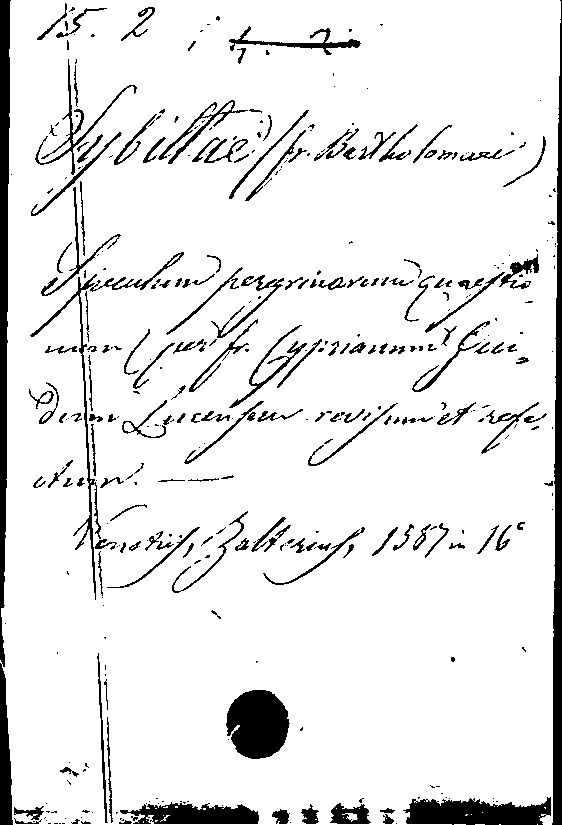 15. 2
Sybillae (fr. Bartholomaei)
Speculum peregrinarum quaestio-
num (per fr. Cyprianum Gui-
dum Lucensem revisum et refe-
ctum. —
Venetiis, Zalterius, 1587 in 16°